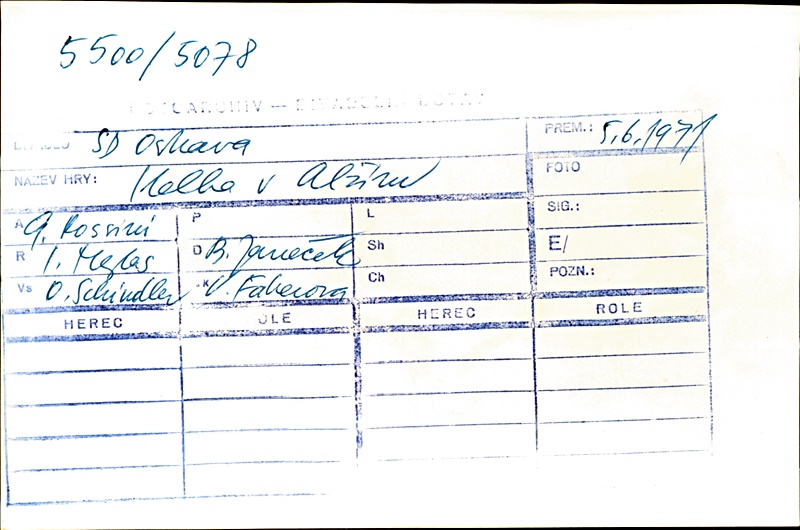 5500/5078
FOTOARCHIV — DIVADELNÍ ÚSTAV
DIVADLO SD Ostrava PREM.: 5.6.1971
NÁZEV HRY: Italka v Alžíru FOTO
A G. Rossini P L SIG.:
R I. O B. Janeček Sh E/
Vs O. Schindler K V. Faberová Ch POZN.:
HEREC ROLE HEREC ROLE